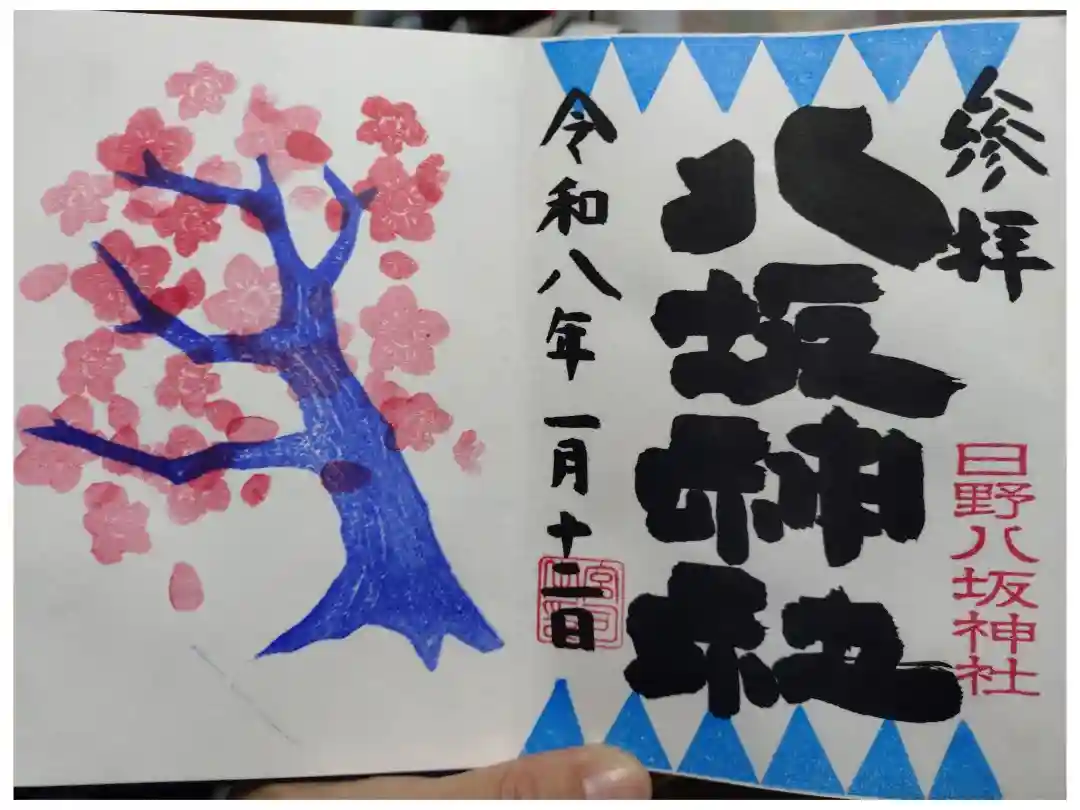 参拝
日野八坂神社
八坂神社
令和八年一月十二日